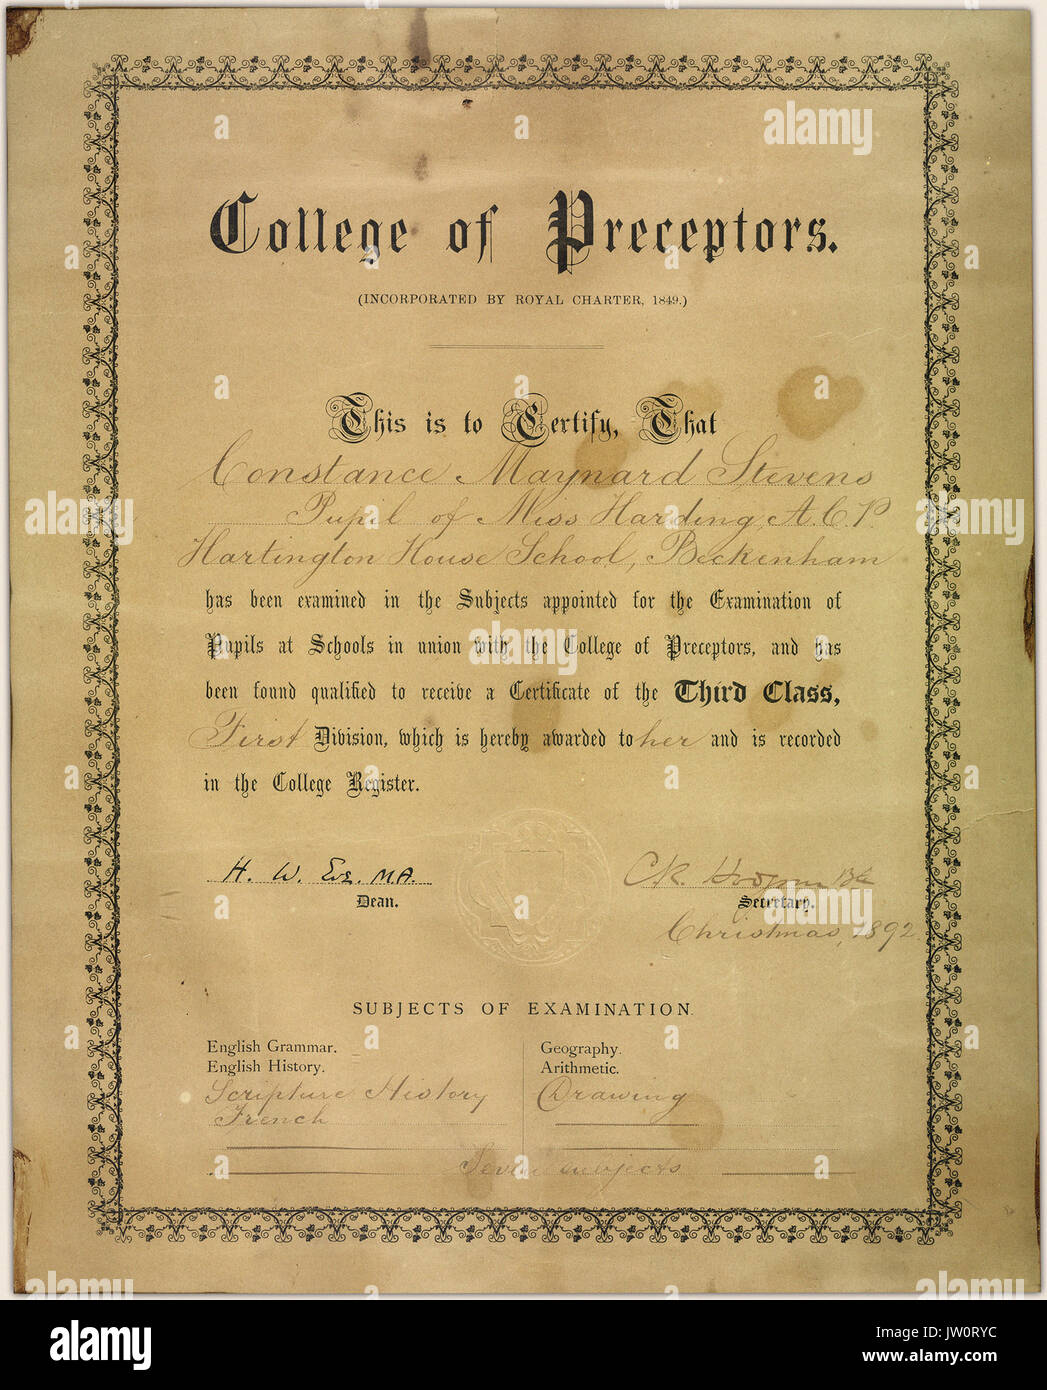 College of Preceptors.
(INCORPORATED BY ROYAL CHARTER, 1849.)
This is to Certify, That
Constance Maynard Stevens
Pupil of Miss Harding, A.C.P.
Hartington House School, Beckenham
has been examined in the Subjects appointed for the Examination of
Pupils at Schools in union with the College of Preceptors, and has
been found qualified to receive a Certificate of the Third Class,
First Division, which is hereby awarded to her and is recorded
in the College Register.
H. W. Eve, M.A.
Dean.
C R Hodgson
Secretary.
Christmas, 1892.
SUBJECTS OF EXAMINATION.
English Grammar.
English History.
Scripture History
French
Geography.
Arithmetic.
Drawing
Seven subjects
a alamy
alamy
Image ID: JW0RYC
www.alamy.com